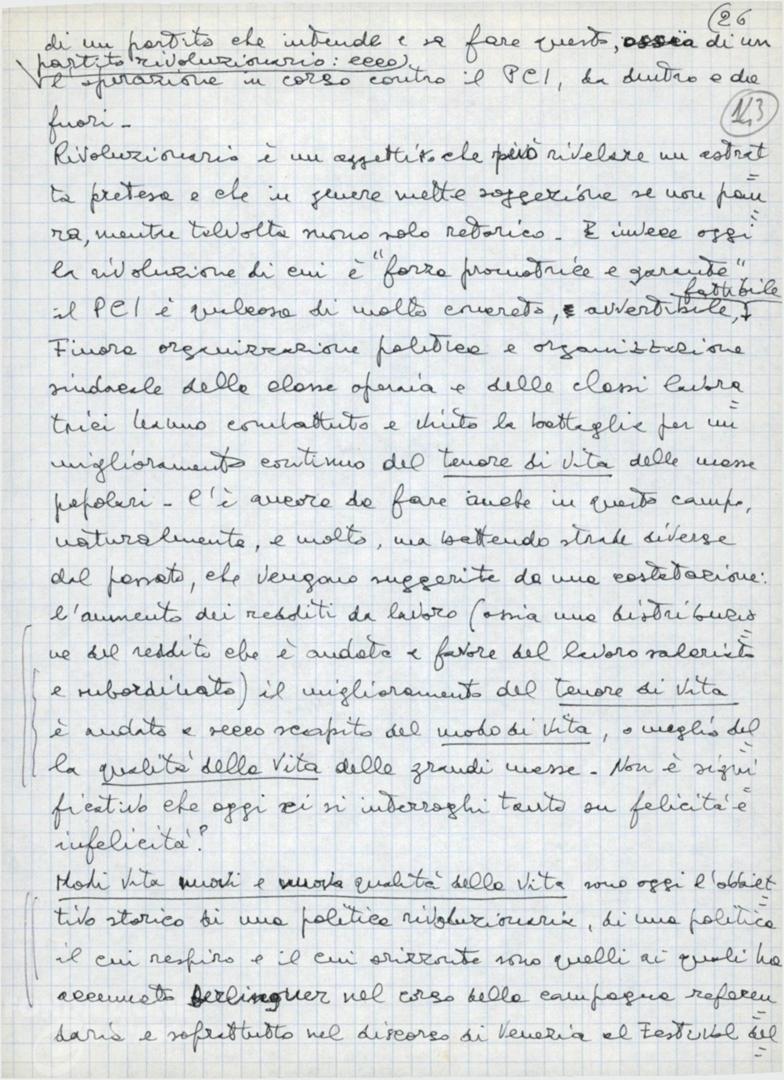 (26
di un partito che intende e sa fare questo, ossia di un
partito rivoluzionario: ecco
l'operazione in corso contro il PCI, da dentro e da
fuori -
143
Rivoluzionario è un aggettivo che può rivelare un astrat
ta pretesa e che in genere mette soggezione se non pau
ra, mentre talvolta suona solo retorico - E invece oggi
la rivoluzione di cui è "forza promotrice e garante"
fattibile
il PCI è qualcosa di molto concreto, avvertibile,
Finora organizzazione politica e organizzazione
sindacale della classe operaia e delle classi lavora
trici hanno combattuto e vinto la battaglia per un
miglioramento continuo del tenore di vita delle masse
popolari - C'è ancora da fare anche in questo campo,
naturalmente, e molto, ma battendo strade diverse
dal passato, che vengano suggerite da una costatazione:
l'aumento dei redditi da lavoro (ossia una distribuzio
ne del reddito che è andata a favore del lavoro salariato
e subordinato) il miglioramento del tenore di vita
è andato a secco scapito del modo di vita, o meglio del
la qualità della vita delle grandi masse - Non è signi
ficativo che oggi ci si interroghi tanto su felicità e
infelicità?
Modi vita nuovi e nuova qualità della vita sono oggi l'obbiet
tivo storico di una politica rivoluzionaria, di una politica
il cui respiro e il cui orizzonte sono quelli ai quali ha
accennato Berlinguer nel corso della campagna referen
daria e soprattutto nel discorso di Venezia al Festival del